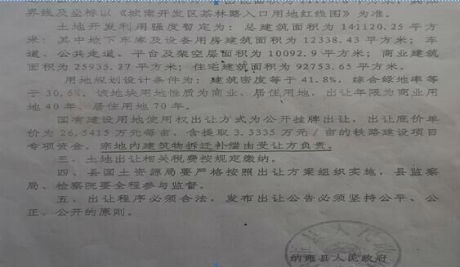 界线及坐标以《披南开发区茶林路入口用地红线图》为准。
土地开发利用强度暂定为：总建筑面积为141120.25平方
米，其中地下车库及设备用房建筑面积为12338.43平方米；车
道、公共走道、平台及架空层面积为10092.9平方米；商业建筑
面积为25935.27平方米；住宅建筑面积为92753.65平方米。
用地规划设计条件为：建筑密度等于41.8%，综合绿地率等
于30.6%，该地块用地性质为商业、居住用地，出让年限为商业用
地40年、居住用地70年。
国有建设用地使用权出让方式为公开挂牌出让，出让底价单
价为26.5415万元每亩，含提取3.3335万元/亩的铁路建设项目
专项资金，宗地内建筑物拆迁补偿由受让方负责。
三、土地出让相关税费按规定缴纳。
四、县国土资源局要严格按照出让方案组织实施，县监察
局、检察院要全程参与监督。
五、出让程序必须合法，发布出让公告必须坚持公平、公
正、公开的原则。
纳雍县人民政府